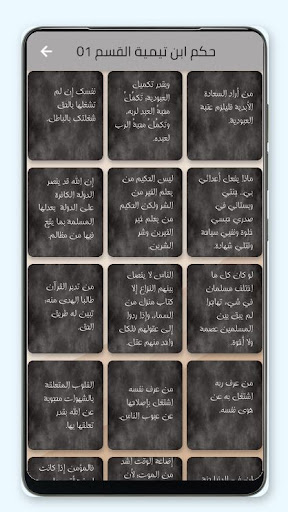 حكم ابن تيمية القسم 01
من أراد السعادة
الأبدية فليلزم عتبة
العبودية.
وبقدر تكميل
العبودية، تكمُلُ
محبةُ العبد لربه،
وتكمُلُ محبةُ الرب
لعبده.
نفسك إن لم
تشغلها بالحق
شغلتك بالباطل.
ماذا يفعل أعدائي
بي.. جنتي
وبستاني في
صدري حبسي
خلوة ونفيي سياحة
وقتلي شهادة.
ليس الحكيم من
يعلم الخير من
الشر ولكن الحكيم
من يعلم خير
الخيرين وشر
الشرين.
إن الله قد ينصر
الدولة الكافرة
على الدولة
المسلمة بما يقع
فيها من مظالم.
لو كان كل ما
اختلف مسلمان
في شيء تهاجرا
لم يبق بين
المسلمين عصمة
ولا أخوة.
الناس لا يفصل
بينهم النزاع إلا
كتاب منزل من
السماء، وإذا ردوا
إلى عقولهم فلكل
واحد منهم عقل.
من تدبر القرآن
طالبا الهدى منه،
تبين له طريق
الحق.
من عرف ربه
اشتغل به عن
هوى نفسه.
من عرف نفسه
اشتغل بإصلاحها
عن عيوب الناس.
القلوب المتعلقة
بالشهوات محجوبة
عن الله بقدر
تعلقها بها.
إضاعة الوقت أشد
من الموت، لأن
فالمؤمن إذا كانت